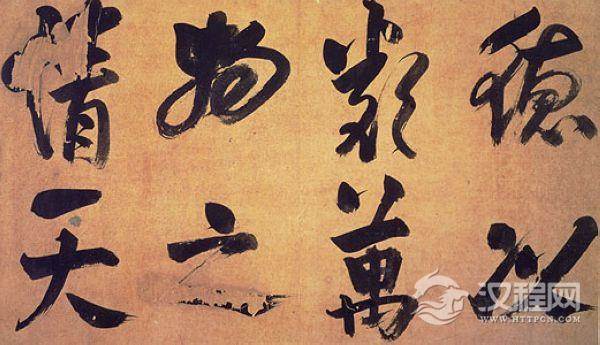 德以
類萬
物之
情天
汉程网
WWW.HTTPCN.COM